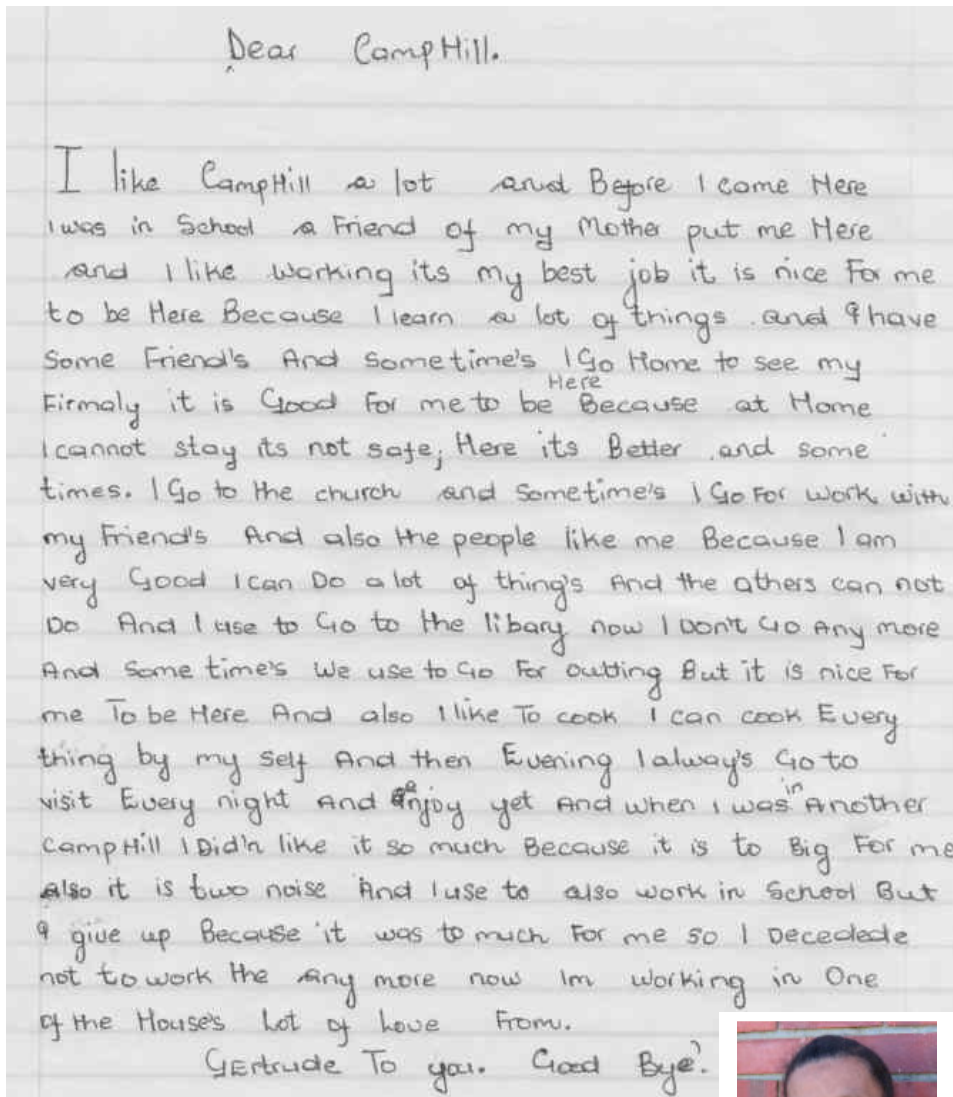 Dear CampHill.
I like CampHill a lot and Before I come Here
I was in School a Friend of my Mother put me Here
and I like working its my best job it is nice For me
to be Here Because I learn a lot of things . and I have
Some Friend's And Sometime's I Go Home to see my
Firmaly it is Good For me to be Here Because at Home
I cannot stay its not safe, Here its Better and some
times. I Go to the church and Sometime's I Go For work with
my Friend's And also the people like me Because I am
very Good I can Do a lot of thing's And the others can not
Do And I use to Go to the libary now I Don't Go Any more
And Some time's We use to Go For outting But it is nice For
me To be Here And also I like To cook I can cook Every
thing by my self And then Evening I alway's Go to
visit Every night And enjoy yet And when I was in Another
CampHill I Did'n like it so much Because it is to Big For me
also it is two noise And I use to also work in School But
I give up Because it was to much For me so I Decedede
not to work the any more now Im working in One
of the House's Lot of Love From.
GErtrude To you. Good Bye?